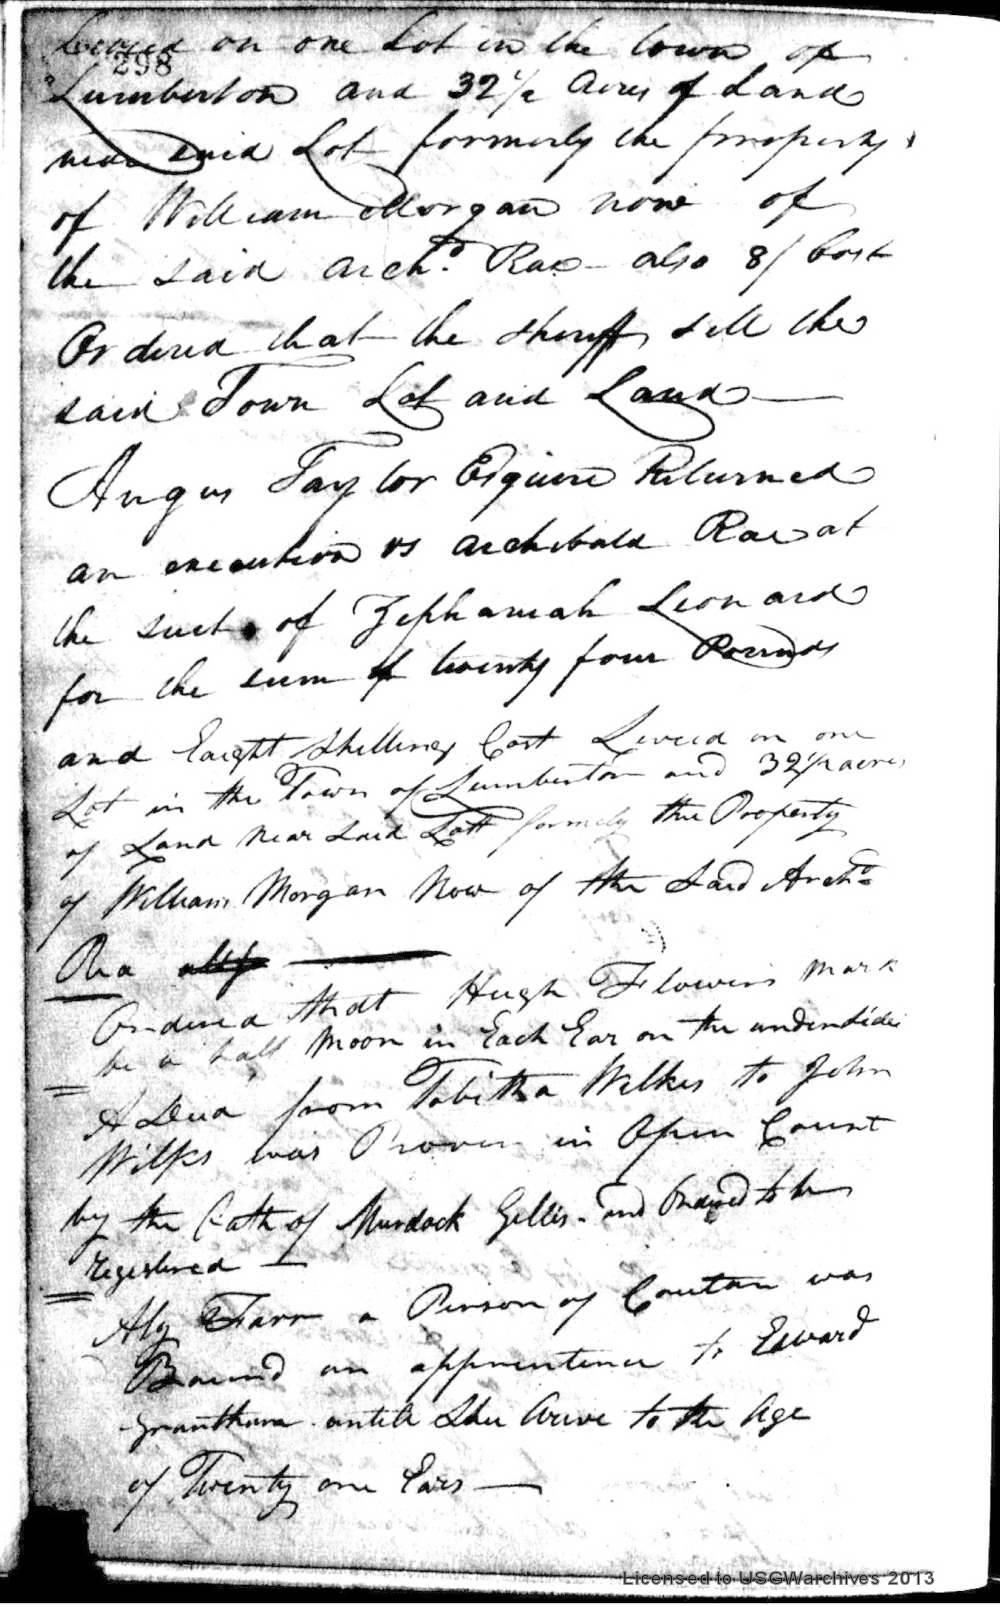 298
Levied on one Lot in the town of
Lumberton and 32 1/2 Acres of Land
near said Lot formerly the property
of William Morgan now of
the said Archd. Rae – also 8/ Cost
Ordered that the sheriff sell the
said Town Lot and Land —
Angus Taylor Esquire Returned
an execution vs Archibald Rae at
the suit of Zephaniah Leonard
for the sum of twenty four Pounds
and Eaight Shillings Cost Levied on one
Lot in the Town of Lumberton and 32 1/2 acres
of Land Near Said Lott formely the Property
of William Morgan Now of the Said Archd
Rea —
Ordered that Hugh Flowers Mark
be a half Moon in Each Ear on the underside
A Deed from Tabitha Wilkes to John
Wilks was Proven in Open Court
by the Oath of Murdock Gillis - and Ordered to be
registered —
Aly Farr a Person of Coular was
Bound an apprentence to Edward
Grantham untill She Arive to the Age
of Twenty one Ears —
Licensed to USGWarchives 2013